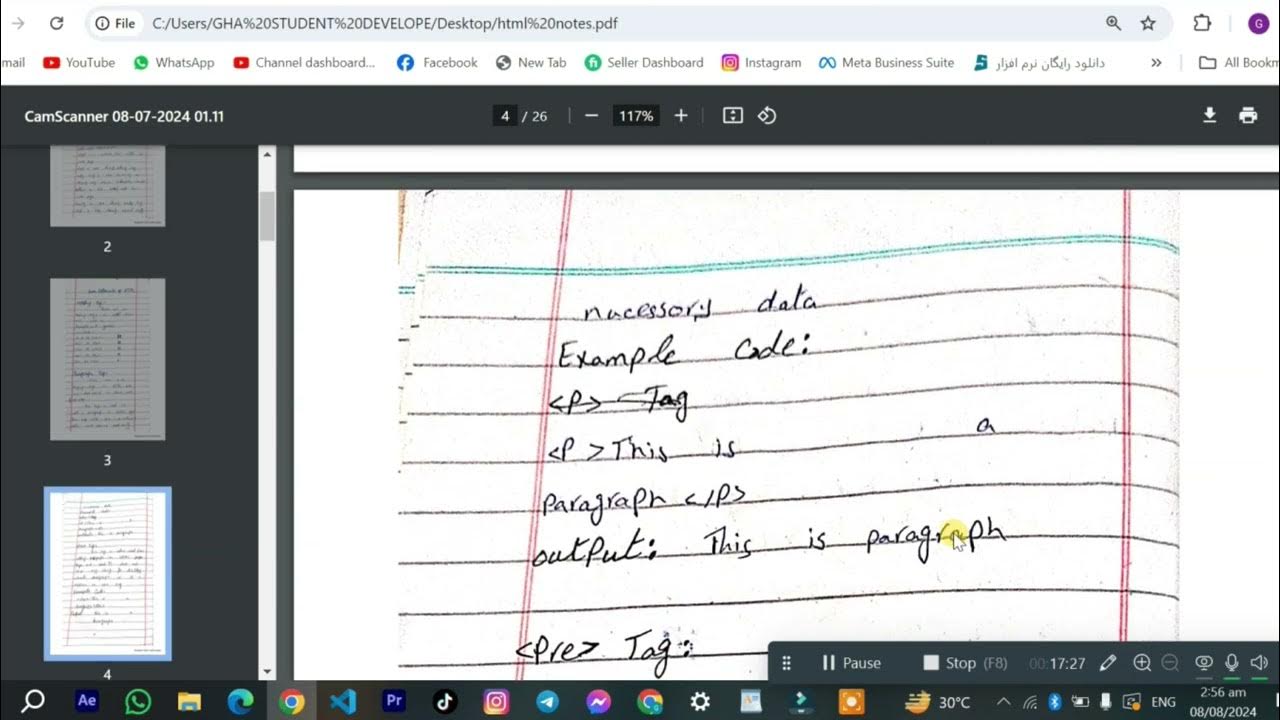 File C:/Users/GHA%20STUDENT%20DEVELOPE/Desktop/html%20notes.pdf G
mail YouTube WhatsApp Channel dashboard... Facebook New Tab Seller Dashboard Instagram Meta Business Suite دانلود رایگان نرم افزار » All Bookm
CamScanner 08-07-2024 01.11 4 / 26 117%
2
3
4
nucessory data
Example Code:
<P> Tag
<P >This is a
paragraph </P>
output: This is paragraph
<pre> Tag:
Pause Stop (F8) 00:17:27
Ae Pr 30°C ENG
2:56 am
08/08/2024